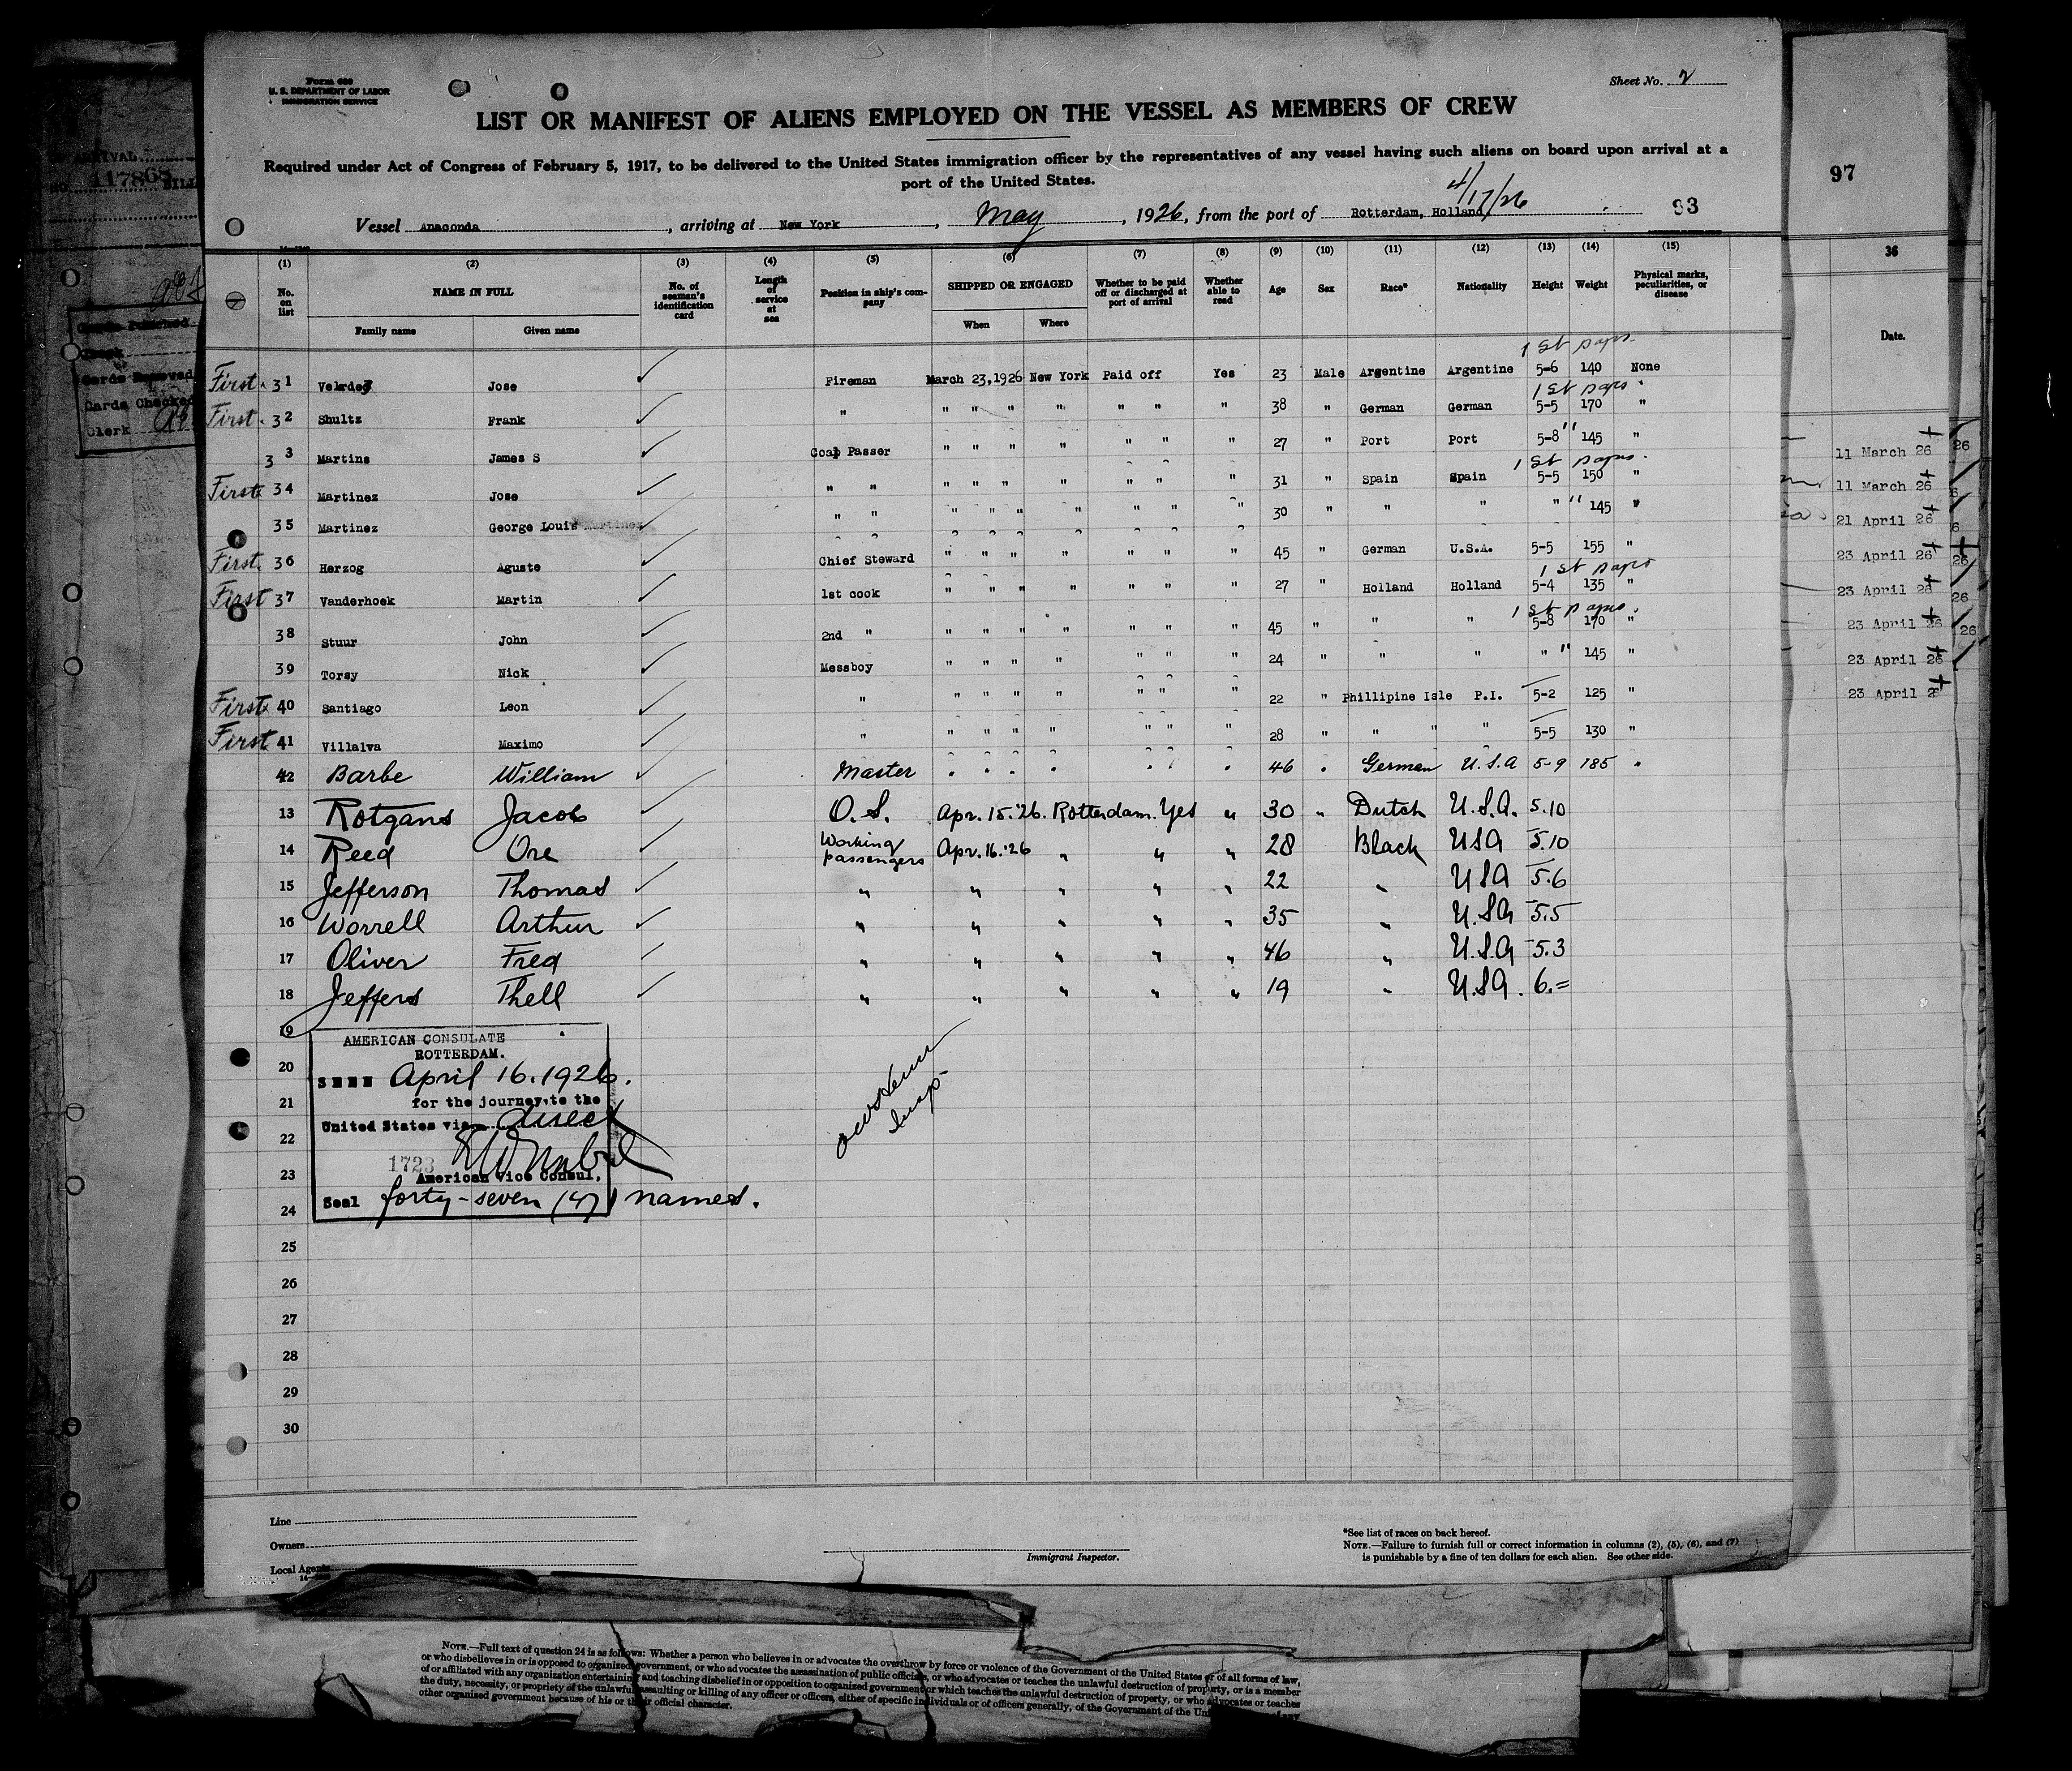 Form 680
U. S. DEPARTMENT OF LABOR
IMMIGRATION SERVICE
Sheet No. 2
LIST OR MANIFEST OF ALIENS EMPLOYED ON THE VESSEL AS MEMBERS OF CREW
Required under Act of Congress of February 5, 1917, to be delivered to the United States immigration officer by the representatives of any vessel having such aliens on board upon arrival at a
port of the United States.
4/17/26
Vessel Anaconda, arriving at New York, May, 1926, from the port of Rotterdam, Holland. 93
(1) (2) (3) (4) (5) (6) (7) (8) (9) (10) (11) (12) (13) (14) (15)
No. on list NAME IN FULL No. of seaman's identification card Length of service at sea Position in ship's company SHIPPED OR ENGAGED Whether to be paid off or discharged at port of arrival Whether able to read Age Sex Race* Nationality Height Weight Physical marks, peculiarities, or disease
Family name Given name When Where
1 St paps.
First. 31 Jose ✓ Fireman March 23,1926 New York Paid off Yes 23 Male Argentine Argentine 5-6 140 None
1 St paps.
First. 32 Shultz Frank ✓ " " " " " " " " 38 " German German 5-5 170 "
33 Martins James S ✓ Coal Passer " " " " " " " 27 " Port Port 5-8 " 145 "
1 St paps.
First. 34 Martinez Jose ✓ " " " " " " " " " 31 " Spain Spain 5-5 150 "
35 Martinez George Louis Martinez ✓ " " " " " " " " " 30 " " " " " 145 "
First. 36 Herzog Aguste ✓ Chief Steward " " " " " " " 45 " German U.S.A. 5-5 155 "
1 St paps
First 37 Vanderhoek Martin ✓ 1st cook " " " " " " " 27 " Holland Holland 5-4 135 "
1 St paps.
38 Stuur John ✓ 2nd " " " " " " " " 45 " " " 5-8 170 "
39 Torsy Nick ✓ Messboy " " " " " " " 24 " " " " " 145 "
First. 40 Santiago Leon ✓ " " " " " " " " 22 " Phillipine Isle P.I. 5-2 125 "
First. 41 Villalva Maximo ✓ " " " " " " " " 28 " " " " 5-5 130 "
42 Barbe William ✓ Master " " " " " " " 46 " German U.S.A 5-9 185 "
13 Rotgans Jacob ✓ O.S. Apr. 15.'26. Rotterdam. Yes " 30 " Dutch U.S.A. 5.10
14 Reed Ore ✓ Working passengers Apr. 16.'26 " " " 28 Black USA 5.10
15 Jefferson Thomas ✓ " " " " " 22 " USA 5.6
16 Worrell Arthur ✓ " " " " " 35 " U.SA 5.5
17 Oliver Fred ✓ " " " " " 46 " U.S.A 5.3
18 Jeffers Thell ✓ " " " " " 19 " U.SA. 6.=
19
20
21
22
23
24
25
26
27
28
29
30
AMERICAN CONSULATE
ROTTERDAM.
SEEN April 16. 1926.
for the journey to the
United States via direct
1723
American Vice Consul.
Seal forty-seven (47) names.
Insp
Line
Owners
Local Agents
Immigrant Inspector.
*See list of races on back hereof.
NOTE.—Failure to furnish full or correct information in columns (2), (5), (6), and (7)
is punishable by a fine of ten dollars for each alien. See other side.
ARRIVAL
NO. 117868
Cards Punched
Cards Removed
Cards Checked
Clerk
97
36
Date.
11 March 26
11 March 26
21 April 26
23 April 26
23 April 26
23 April 26
23 April 26
23 April 2
NOTE.—Full text of question 24 is as follows: Whether a person who believes in or advocates the overthrow by force or violence of the Government of the United States or of all forms of law,
or who disbelieves in or is opposed to organized government, or who advocates the assassination of public officials, or who advocates or teaches the unlawful destruction of property, or is a member
of or affiliated with any organization entertaining and teaching disbelief in or opposition to organized government or which teaches the unlawful destruction of property, or who advocates or teaches
the duty, necessity, or propriety of the unlawful assaulting or killing of any officer or officers, either of specific individuals or of officers generally, of the Government of the
other organized government because of his or their official character.